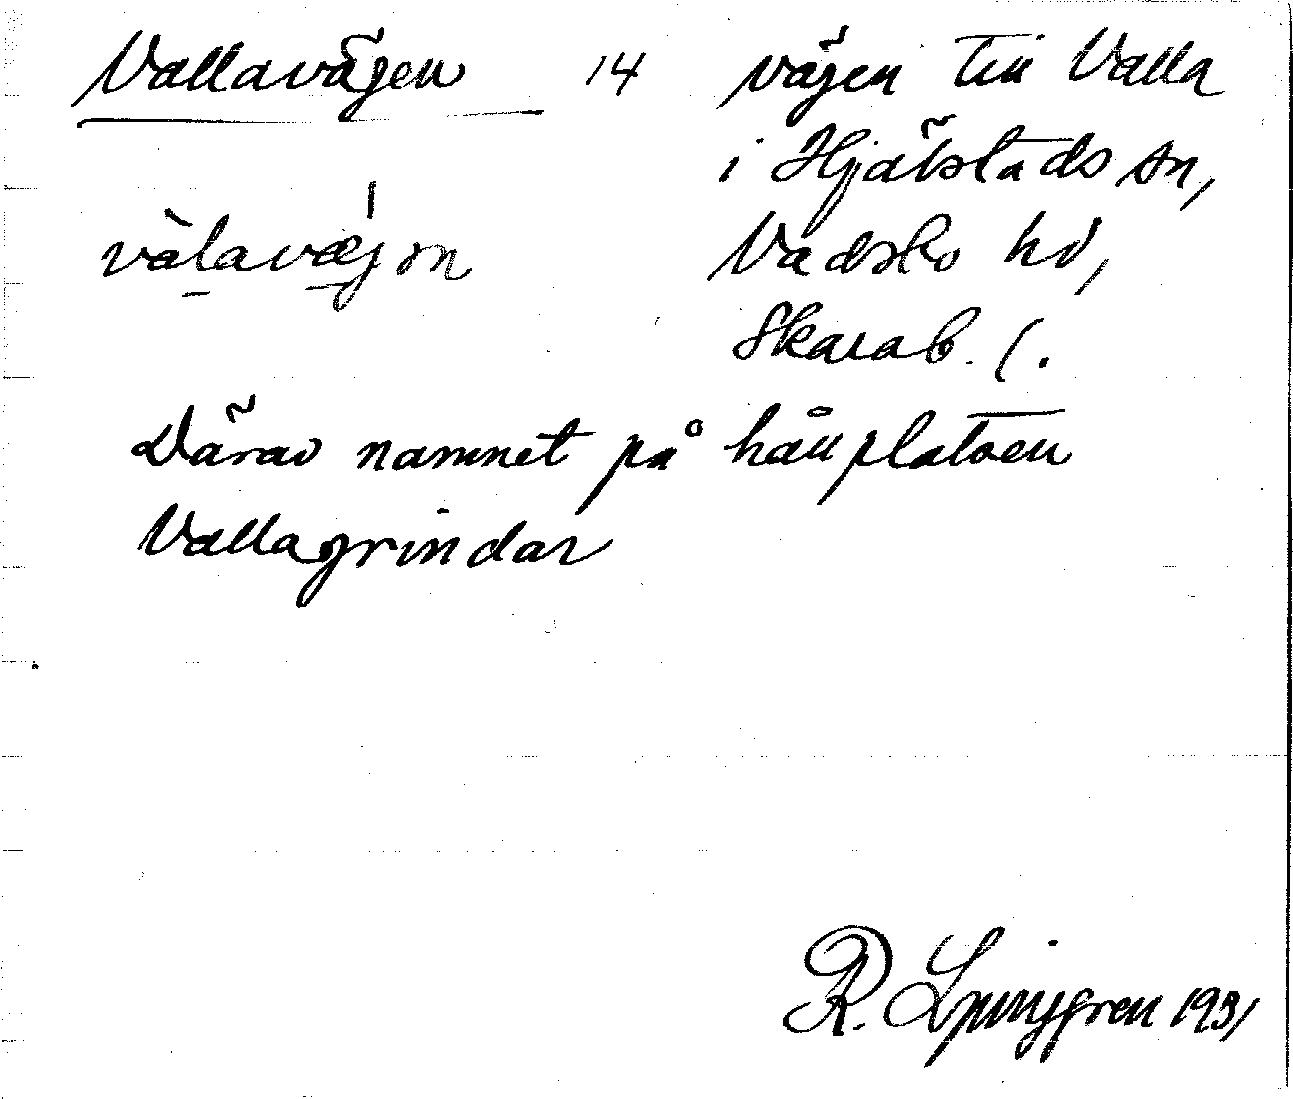 Vallavägen 14 vägen till Valla
i Hjälstads sn,
Vadsbo hd,
Skarab. l.
Därav namnet på hållplatsen
Vallagrindar
R. Ljunggren 1931